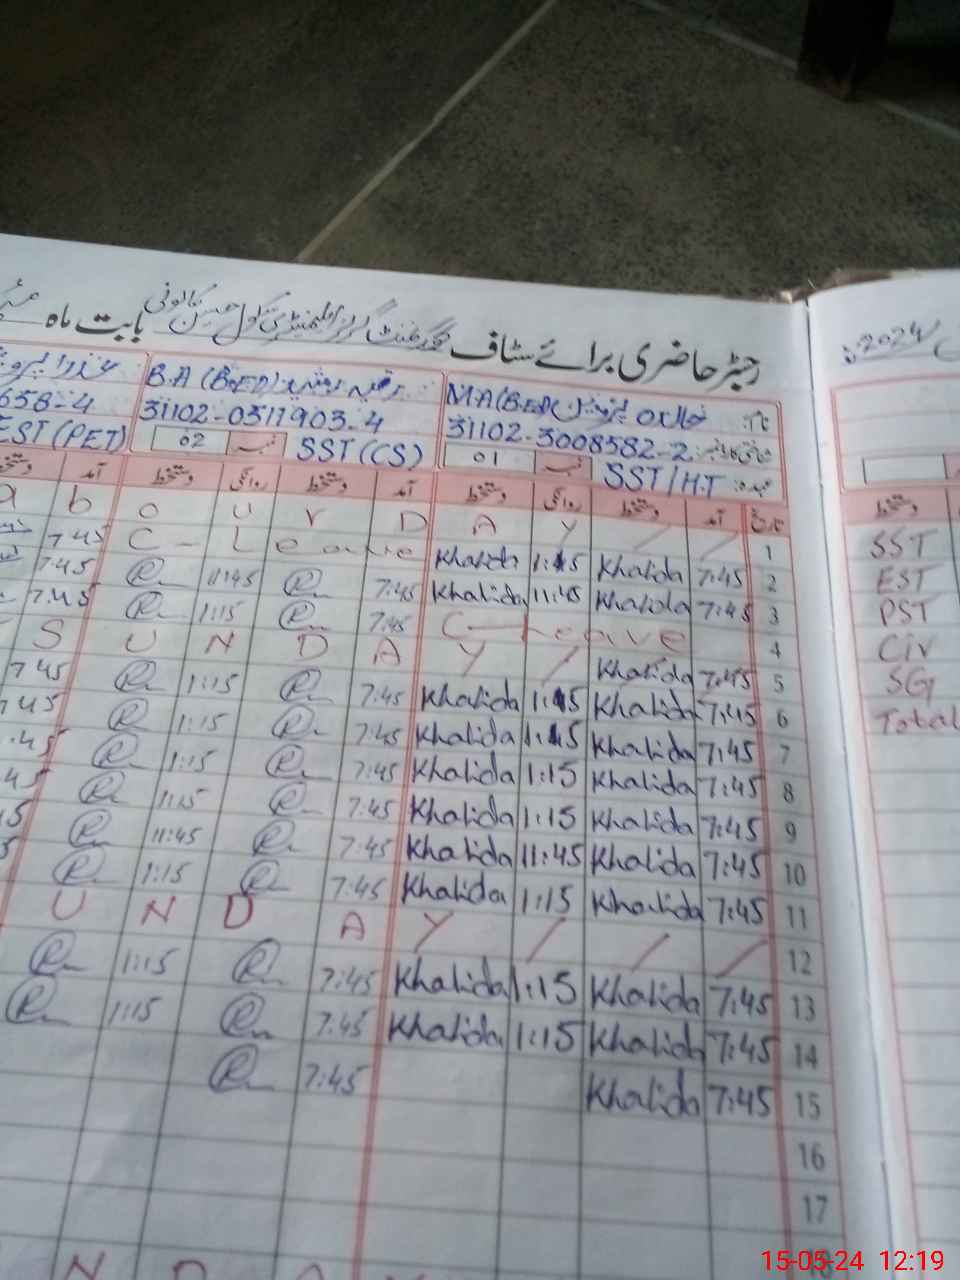 رجسٹر حاضری برائے سٹاف گورنمنٹ گرلز ایلیمنٹری سکول حسین کالونی بابت ماہ
2024
نام: M.A (B.ED)
B.A (B.ED)
31102-3008582-2
31102-0311903-4
658-4
عہدہ: SST/H.T نمبر 01
SST (CS) نمبر 02
EST (PET)
تاریخ آمد دستخط روانگی دستخط آمد دستخط روانگی دستخط
a b o u r D A Y / / 1
7:45 C-Leave Khalida 1:15 Khalida 7:45 2
7:45 11:45 7:45 Khalida 11:45 Khalida 7:45 3
7:45 1:15 7:45 C-Leave 4
S U N D A Y / Khalida 7:45 5
7:45 1:15 7:45 Khalida 1:15 Khalida 7:45 6
7:45 1:15 7:45 Khalida 1:15 Khalida 7:45 7
:45 1:15 7:45 Khalida 1:15 Khalida 7:45 8
45 1:15 7:45 Khalida 1:15 Khalida 7:45 9
5 11:45 7:45 Khalida 11:45 Khalida 7:45 10
5 1:15 7:45 Khalida 1:15 Khalida 7:45 11
U N D A Y / / / 12
1:15 7:45 Khalida 1:15 Khalida 7:45 13
1:15 7:45 Khalida 1:15 Khalida 7:45 14
7:45 Khalida 7:45 15
16
17
N D A Y
دستخط
SST
EST
PST
Civ
SG
Total
15-05-24 12:19